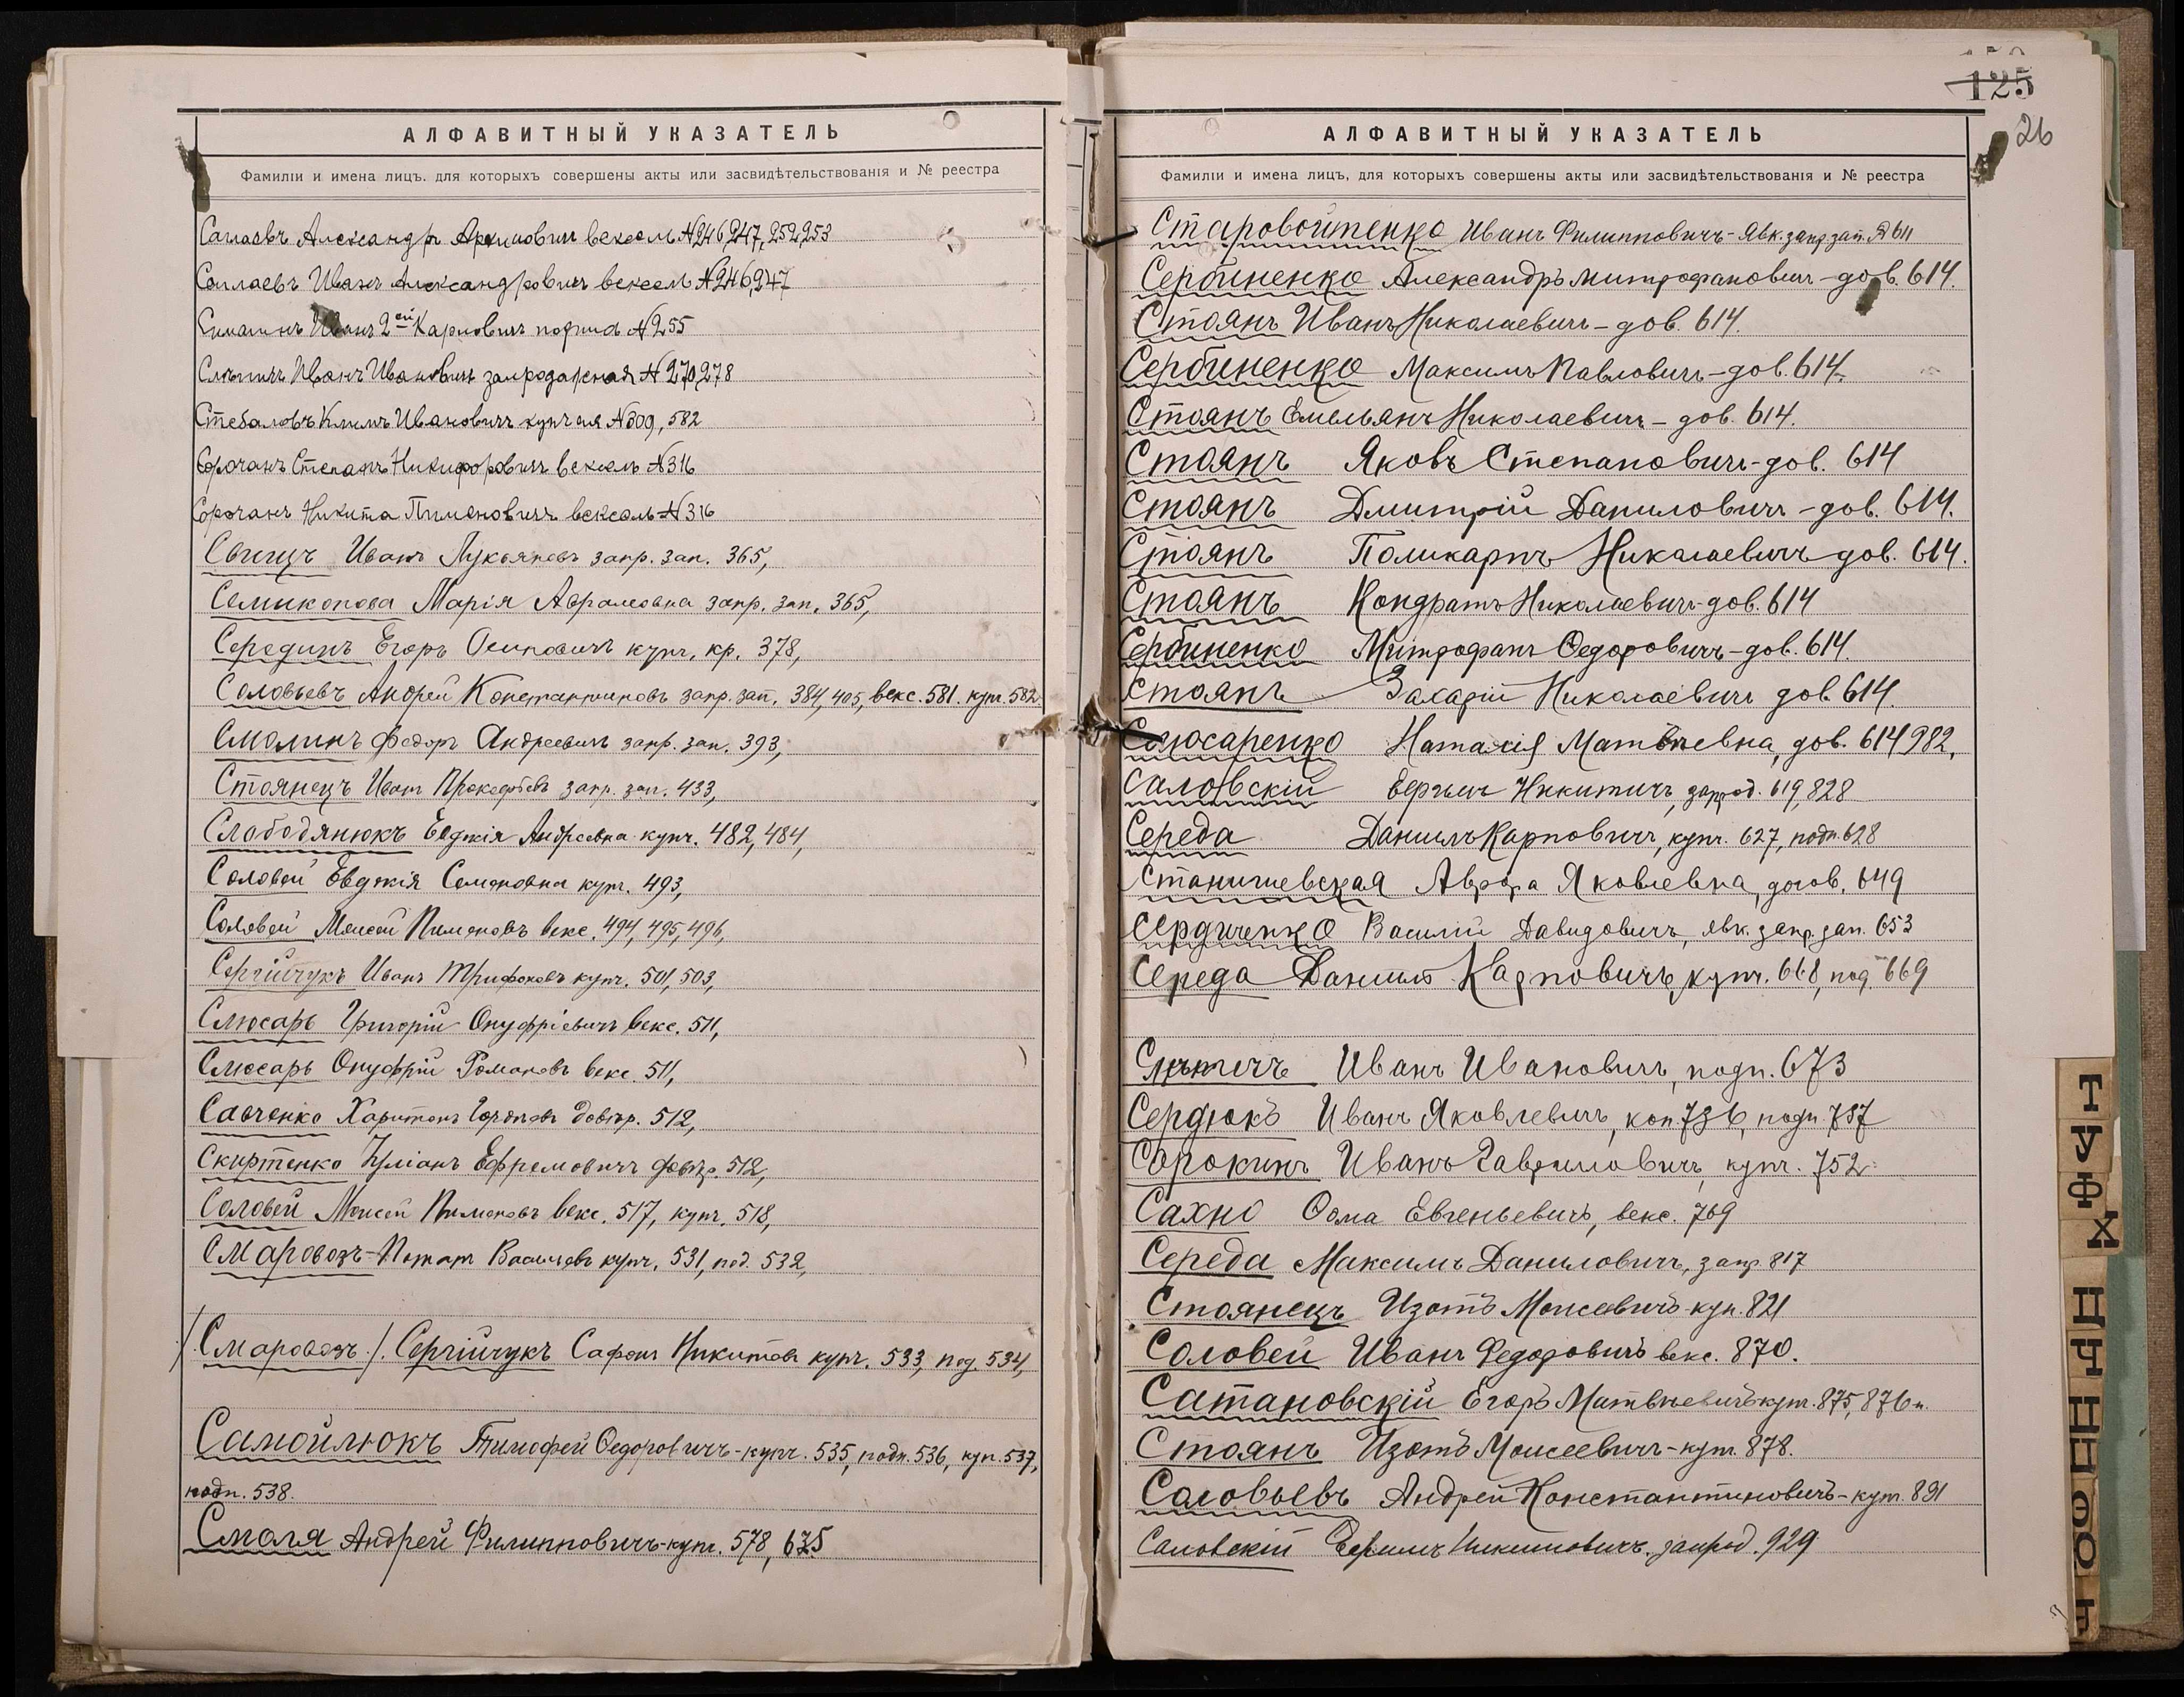 АЛФАВИТНЫЙ УКАЗАТЕЛЬ
Фамилiи и имена лицъ, для которыхъ совершены акты или засвидѣтельствованiя и № реестра
Александръ вексель №246,247,252,253
Иванъ Александровичъ вексель №246,247
Иванъ 2ой Карповичъ №255
Иванъ Ивановичъ запродажная №270,278
Стебаловъ Климъ Ивановичъ купчая №309, 582
Сорочанъ Степанъ Никифоровичъ вексель №316
Сорочанъ Никита Пимоновичъ вексель №316
Свищъ Иванъ Лукьяновъ запр. зап. 365,
Семикопова Марія Абрамовна запр. зап. 365,
Серединъ Егоръ Осиповичъ купч. кр. 378,
Соловьевъ Андрей Константиновъ запр. зап. 384, 405, векс. 581. купч. 582.
Смолинъ Федоръ Андреевичъ запр. зап. 393,
Стоянецъ Иванъ Прокофьевъ запр. зап. 433,
Слободянюкъ Евдокія Андреевна купч. 482, 484,
Соловей Евдокія Семеновна купч. 493,
Соловей Моисей Пимоновъ векс. 494, 495, 496,
Сергійчукъ Иванъ Трифоновъ купч. 501, 503,
Слюсарь Григорій Онуфріевичъ векс. 511,
Слюсарь Онуфрій Романовъ векс. 511,
Савченко Харитонъ довѣр. 512,
Скиртенко Уліанъ Ефремовичъ довѣр. 512,
Соловей Моисей Пимоновъ векс. 517, купч. 518,
Смаровозъ Васильевъ купч. 531, под. 532,
/Смаровозъ./. Сергійчукъ Сафонъ Никитовъ купч. 533, под. 534,
Самойлюкъ Тимофей Ѳедоровичъ-купч. 535, подп. 536, куп. 537,
подп. 538.
Смоля Андрей Филипповичъ-купч. 578, 625
125
26
АЛФАВИТНЫЙ УКАЗАТЕЛЬ
Фамилiи и имена лицъ, для которыхъ совершены акты или засвидѣтельствованiя и № реестра
Старовойтенко Иванъ Филипповичъ-явк. запр. зап. № 611
Сербиненко Александръ Митрофановичъ-дов. 614.
Стоянъ Иванъ Николаевичъ-дов. 614.
Сербиненко Максимъ Павловичъ-дов. 614.
Стоянъ Емельянъ Николаевичъ-дов. 614.
Стоянъ Яковъ Степановичъ-дов. 614
Стоянъ Дмитрій Даниловичъ-дов. 614.
Стоянъ Поликарпъ Николаевичъ дов. 614.
Стоянъ Кондратъ Николаевичъ-дов. 614
Сербиненко Митрофанъ Ѳедоровичъ-дов. 614.
Стоянъ Захарій Николаевичъ дов. 614.
Слюсаренко Наталія Матвѣевна, дов. 614 982,
Саловскій Ефимъ Никитичъ, запрод. 619, 828
Середа Даніилъ Карповичъ, купч. 627, подп. 628
Станишевская Яковлевна, догов. 649
Сердиченко Василій Давидовичъ, явк. запр. зап. 653
Середа Даніилъ Карповичъ, купч. 668, под. 669
Иванъ Ивановичъ, подп. 673
Сердюкъ Иванъ Яковлевичъ, коп. 736, подп. 737
Сорокинъ Иванъ Гавриловичъ, купч. 752
Сахно Ѳома Евгеньевичъ, векс. 769
Середа Максимъ Даниловичъ, запр. 817
Стоянецъ Изотъ Моисеевичъ куп. 821
Соловей Иванъ Федоровичъ векс. 870.
Сатановскій Егоръ Матвѣевичъ купч. 875, 876 п.
Стоянъ Изотъ Моисеевичъ-купч. 878.
Соловьевъ Андрей Константиновичъ-купч. 891
Саловскій Ефимъ Никитовичъ. запрод. 929
Т
У
Ф
Х
Ц
Ч